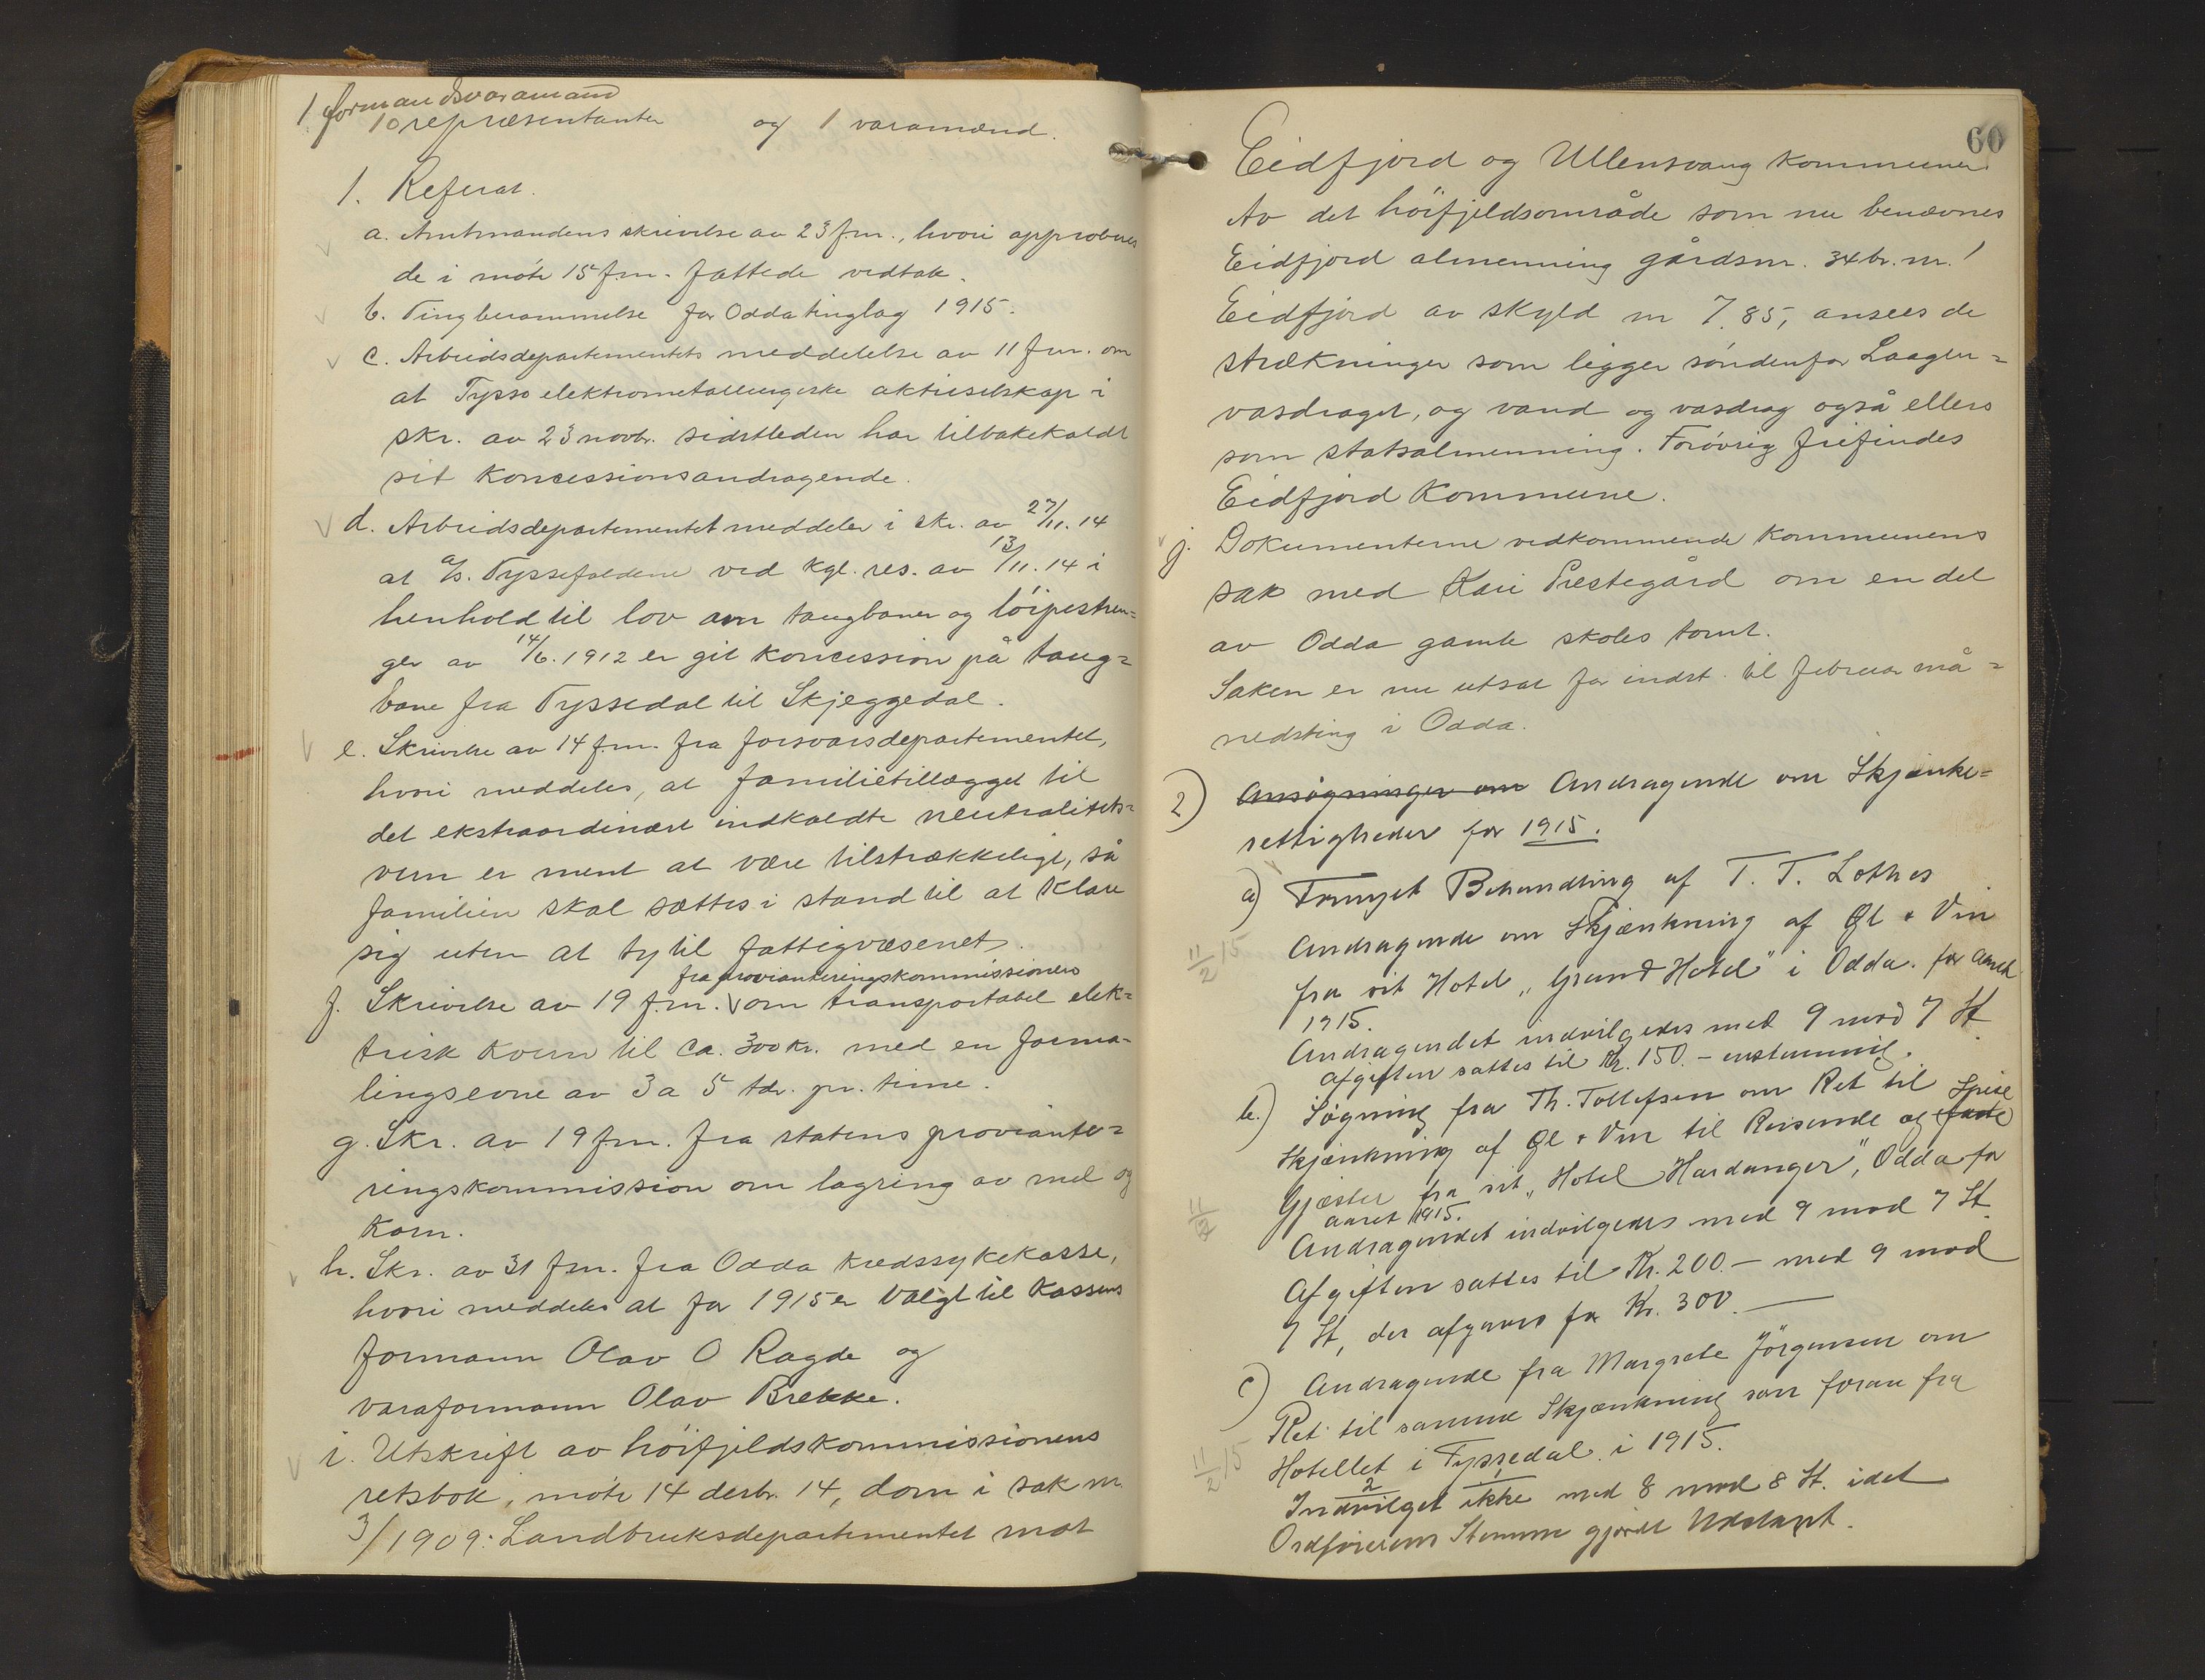 1 formandsvaramand
10 repræsentanter og 1 varamænd.
1. Referat.
a. Amtmandens skrivelse av 23 f.m., hvori approberes
de i møte 15 f.m. fattede vedtak.
b. Tingberammelse for Odda tinglag 1915.
c. Arbeidsdepartementets meddelelse av 11 f.m. om
at Tysso elektrometallurgiske aktieselskap i
skr. av 23 novbr. sidstleden har tilbakekaldt
sit koncessionsandragende.
d. Arbeidsdepartementet meddeler i skr. av 27/11.14
at a/s. Tyssefaldene ved kgl. res. av 13/11.14 i
henhold til lov om taugbaner og löipestren=
ger av 14/6.1912 er git koncession på taug=
bane fra Tyssedal til Skjeggedal.
e. Skrivelse av 14 f.m. fra forsvarsdepartementet,
hvori meddeles, at familietillægget til
det ekstraordinært indkaldte neutralitets=
vern er ment at være tilstrækkeligt, så
familien skal sættes i stand til at klare
sig uten at ty til fattigvæsenet.
fra provianteringskommissionens
f. Skrivelse av 19 f.m. om transportabel elek=
trisk kvern til ca. 300 kr. med en forma-
lingsevne av 3 a 5 tdr. pr. time.
g. Skr. av 19 f.m. fra statens provianter=
ringskommission om lagring av mel og
korn.
h. Skr. av 31 f.m. fra Odda kredssykekasse,
hvori meddeles at for 1915 er valgt til kassens
formann Olav O Ragde og
varaformann Olav Brekke.
i. Utskrift av höifjeldskommissionens
retsbok, møte 14 desbr. 14, dom i sak nr.
3/1909: Landbruksdepartementet mot
60
Eidfjord og Ullensvang kommuner.
Av det höifjeldsområde som nu benævnes
Eidfjord almenning gårdsnr. 34 br. nr. 1
Eidfjord av skyld m 7.85, ansees de
strækninger som ligger söndenfor Laagen=
vasdraget, og vand og vasdrag også ellers
som statsalmenning. Forövrig frifindes
Eidfjord kommune.
j. Dokumenterne vedkommende kommunens
sak med Kari Prestegård om en del
av Odda gamle skoles tomt.
Saken er nu utsat for indst. til februar må=
nedsting i Odda.
2) Ansøgninger om Andragende om Skjænke=
rettigheder for 1915.
a) Fornyet Behandling af T. T. Lothes
Andragende om Skjænkning af Øl & Vin
11/2 15
fra sit Hotel „Grand Hotel" i Odda. for aaret
1915.
Andragendet indvilgedes med 9 mod 7 St.
Afgiften sattes til Kr. 150.- enstemmig.
b.) Søgning fra Th. Tollefsen om Ret til
Skjænkning af Øl & Vin til Reisende og faste Spise
Gjæster fra sit „Hotel Hardanger", Odda for
aaret 1915.
11/2
Andragendet indvilgedes med 9 mod 7 St.
Afgiften sattes til Kr. 200.- med 9 mod
7 St, der afgaves for Kr. 300.-
c) Andragende fra Margrete Jörgensen om
Ret til samme Skjænkning som foran fra
11/2 15
Hotellet i Tyssedal i 1915.
Indvilget ikke med 8 mod 8 St. idet
2 1
Ordførerens Stemme gjorde Udslaget.